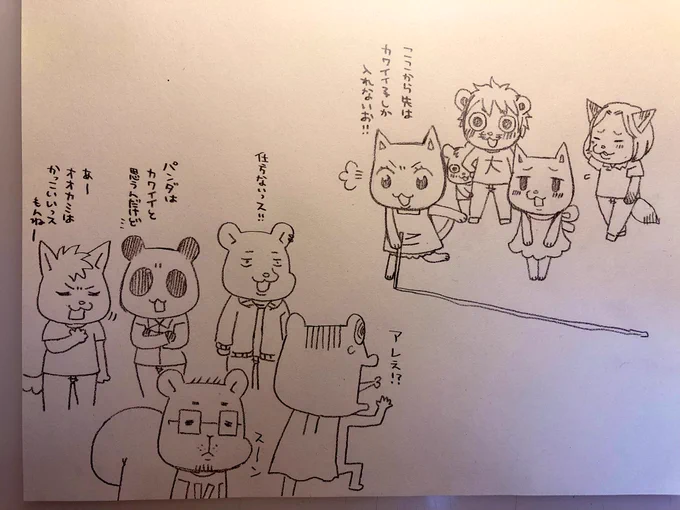 ここから先は
カワイイ子しか
入れないお!!
大
仕方ないっス!!
パンダは
カワイイと
思うんだけど
あー
オオカミは
かっこいいっス
もんねー
アレぇ!?
スーン